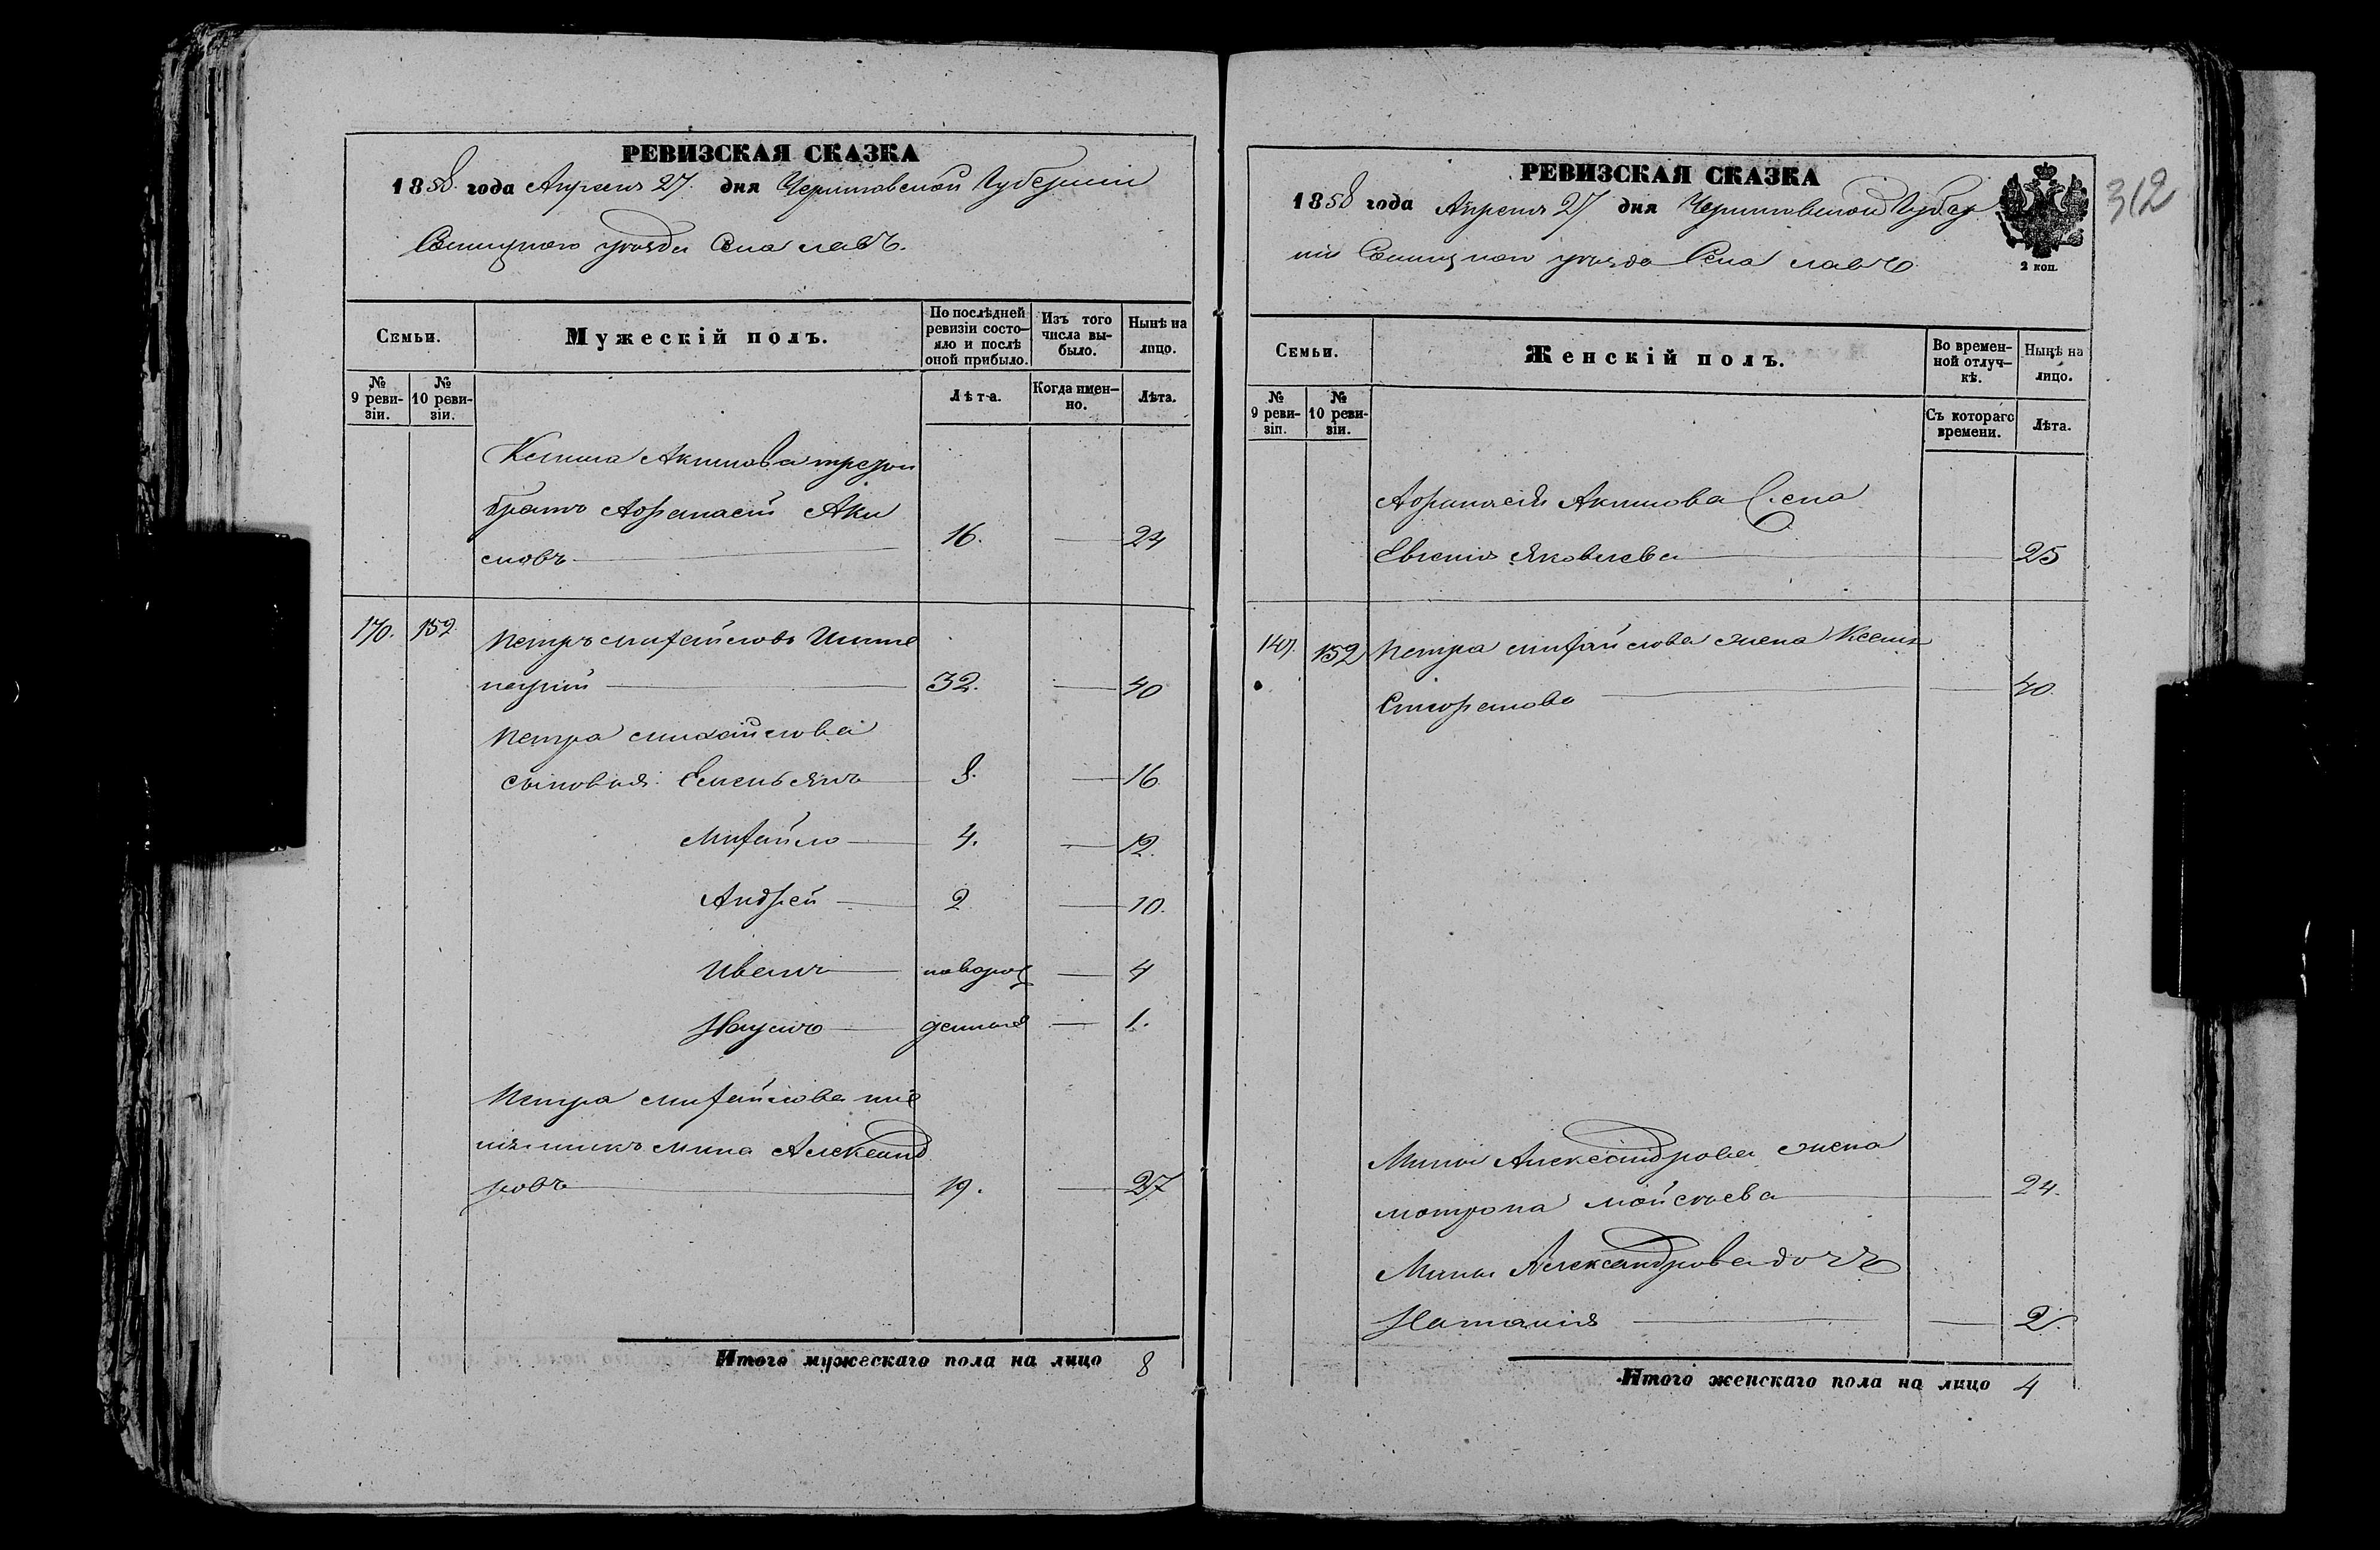 РЕВИЗСКАЯ СКАЗКА
1858 года Апреля 27 дня Черниговской Губернии
Сосницкого уезда Села
Семьи.
Мужескій полъ.
По послѣдней ревизіи состояло и послѣ оной прибыло.
Изъ того числа выбыло.
Нынѣ на лицо.
№ 9 ревизіи.
№ 10 ревизіи.
Лѣта.
Когда именно.
Лѣта.
Акимова третій
братъ Афанасій Аки
мовъ 16. 24
170. 152 Петръ Михайловъ
32. 40
Петра Михайлова
сыновья: Емельянъ 8. 16
Михайло 4. 12.
Андрей 2 10.
Иванъ новорож 4
Наумъ денные 1.
Петра Михайлова пле
мянникъ Мина Александ
ровъ 19. 27
Итого мужескаго пола на лицо 8
РЕВИЗСКАЯ СКАЗКА
1858 года Апреля 27 дня Черниговской Губер
ніи Сосницкого уезда Села
2 коп.
312
Семьи.
Женскій полъ.
Во временной отлучкѣ.
Нынѣ на лицо.
№ 9 ревизіи.
№ 10 ревизіи.
Съ котораго времени.
Лѣта.
Афанасія Акимова жена
Евгенія Яковлева 25
152 Петра Михайлова жена Ксенія
40.
Мины Александрова жена
Мотрона Мойсеева 24.
Мины Александрова дочь
Наталія 2.
Итого женскаго пола на лицо 4